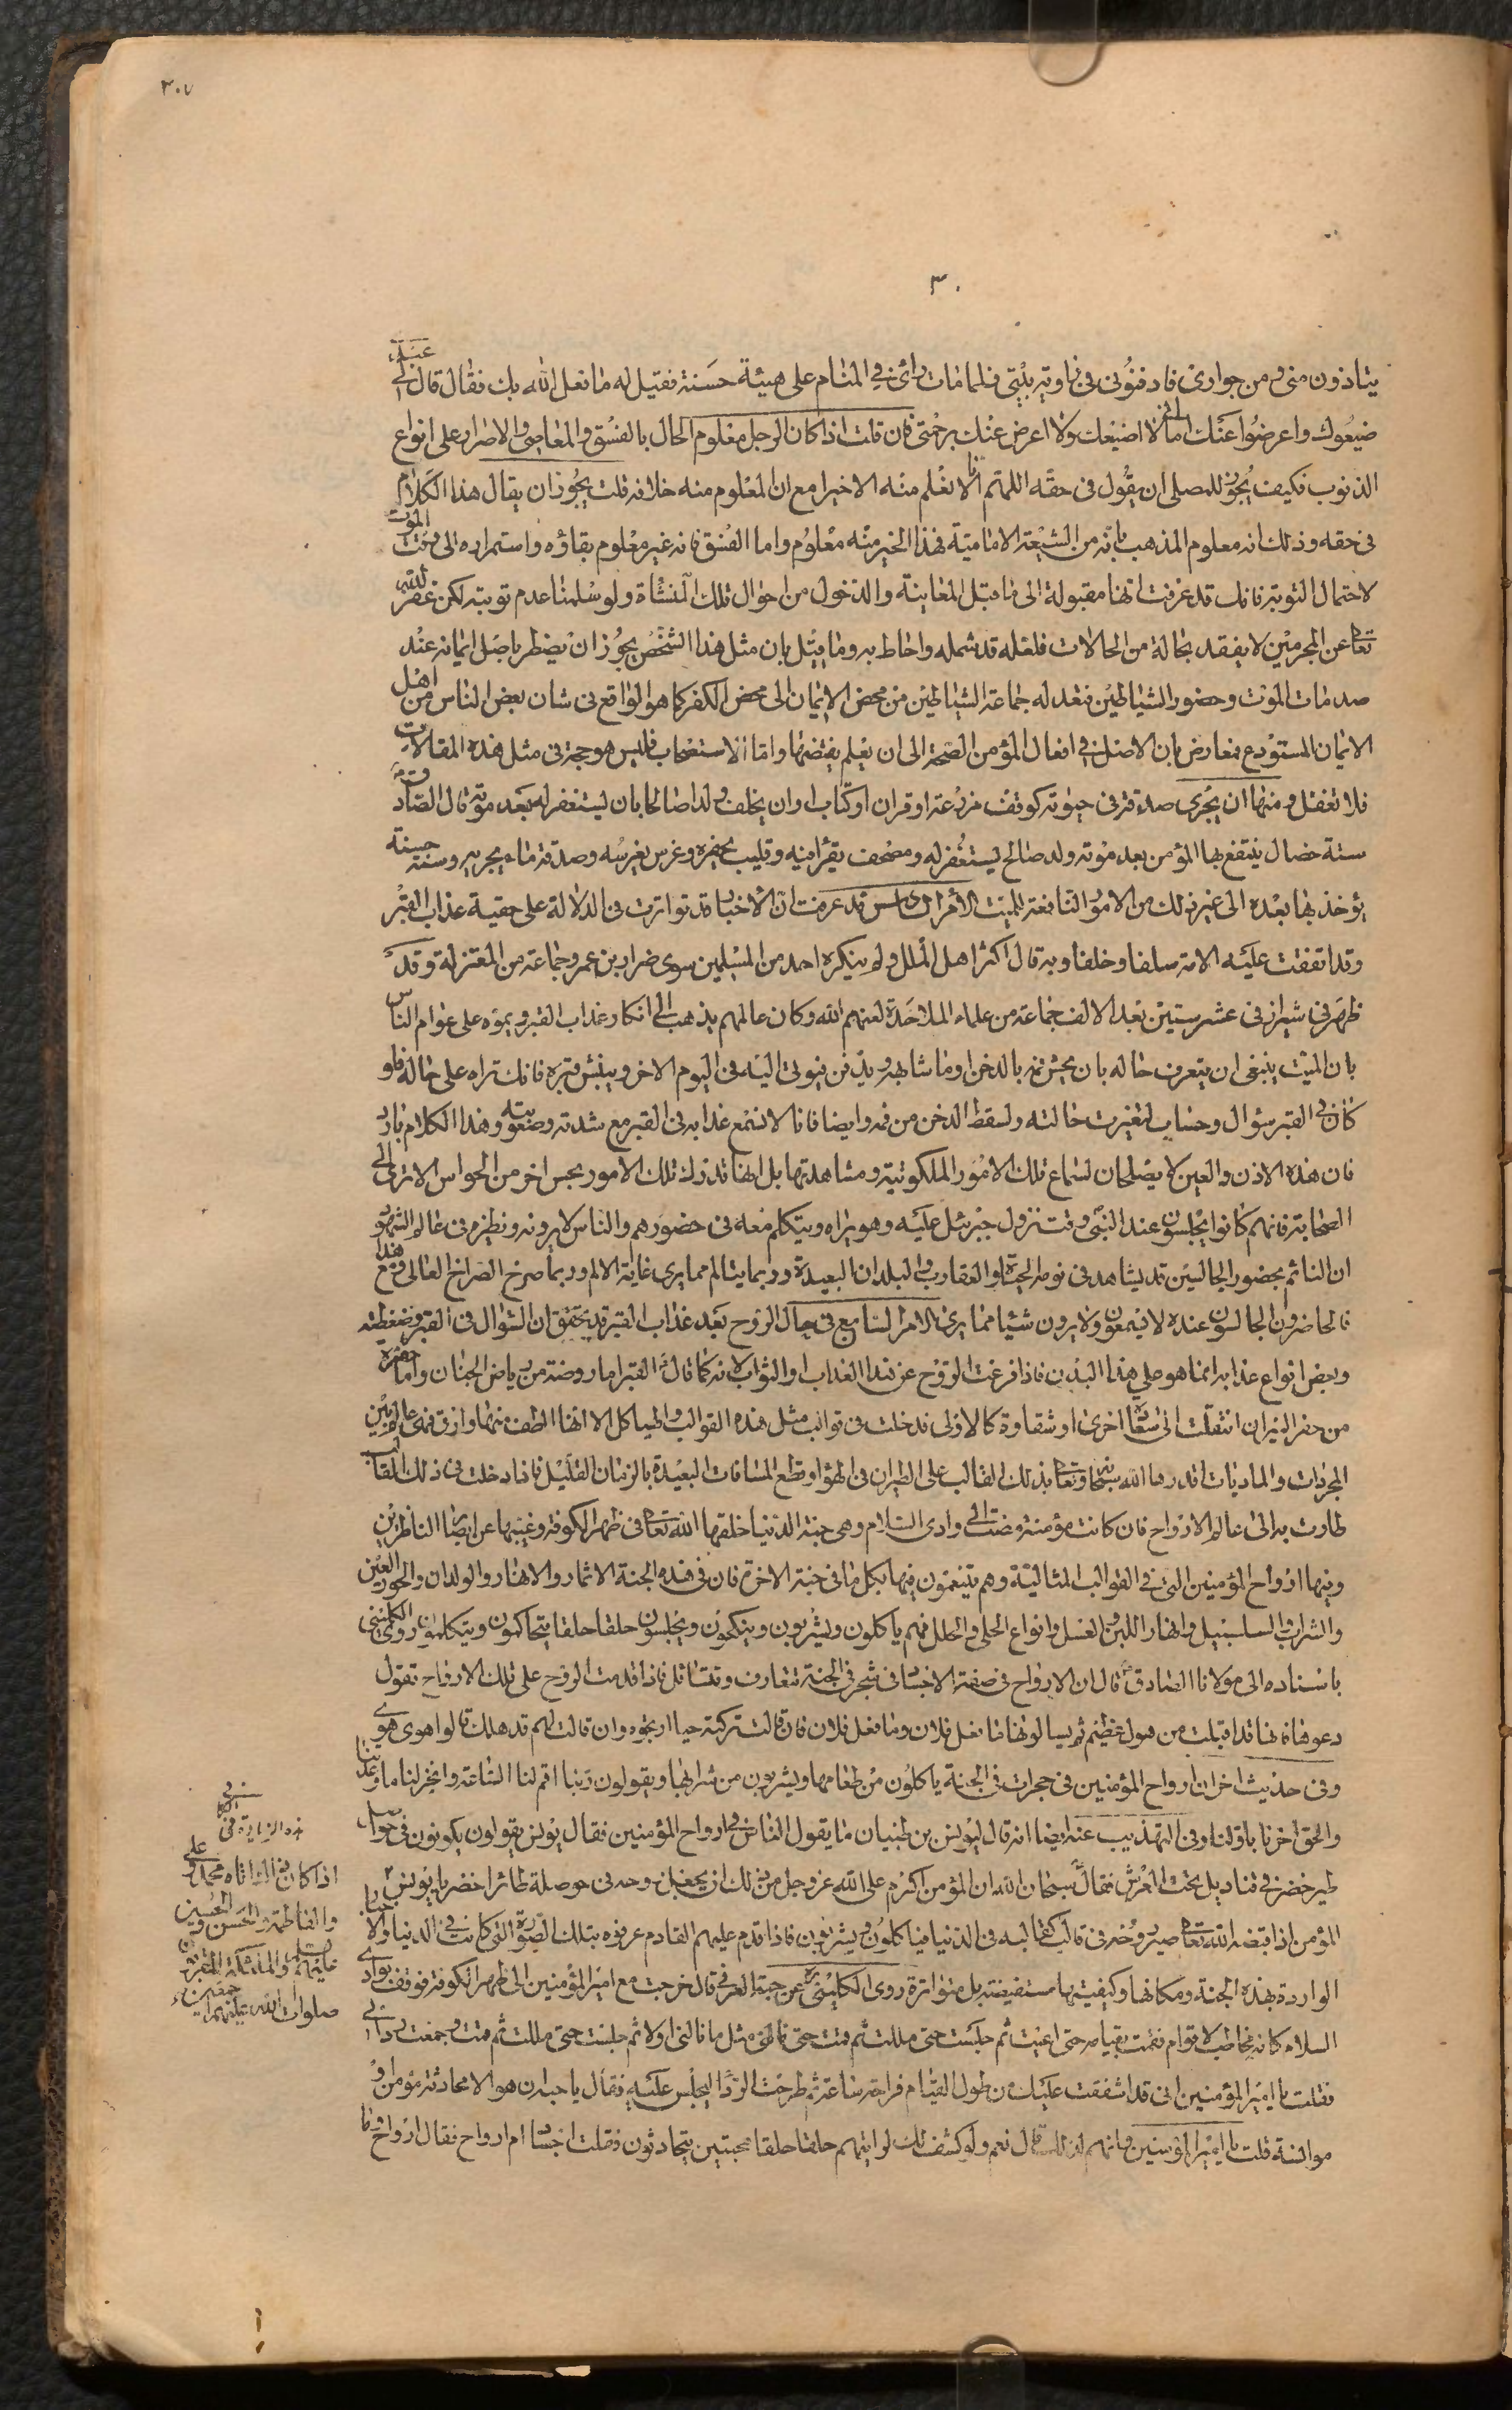 ٣٠٧
٣٠
يتاذون منى ومن جوارى فادفنونى فى زاوية بيتى فلما مات رائى فى المنام على هيئة حسنة فقيل له ما فعل الله بك فقال قال لى عبدى
ضيعوك واعرضوا عنك اما انى لا اضيعك ولا اعرض عنك برحمتى فان قلت اذا كان الرجل معلوم الحال بالفسق والمعاصى والاصرار على انواع
الذنوب فكيف يجوز للمصلى ان يقول فى حقه اللهم انا لا نعلم منه الا خيرا مع ان المعلوم منه خلافه قلت يجوز ان يقال هذا الكلام
فى حقه وذلك انه معلوم المذهب بانه من الشيعة الامامية فهذا الخير منه معلوم واما الفسق فانه غير معلوم بقاؤه واستمراره الى وقت الموت
لاحتمال التوبة فانك قد عرفت انها مقبولة الى ما قبل المعاينة والدخول من احوال تلك النشأة ولو سلمنا عدم توبته لكن عفو الله
تعا عن المجرمين لا يفقد بحالة من الحالات فلعله قد شمله واحاط به وما قيل بان مثل هذا الشخص يجوز ان يضطر باصل ايمانه عند
صدمات الموت وحضور الشياطين فتعدله جماعة الشياطين من محض الايمان الى محض الكفر كما هو الواقع فى شان بعض الناس من اهل
الايمان المستودع فمعارض بان الاصل فى افعال المؤمن الصحة الى ان يعلم يقتضها واما الاستصحاب فليس هو حجة فى مثل هذه المقالات
فلا تغفل ومنها ان يجرى صدقة فى حيوته كوقف مزرعة او قران او كتاب او ان يخلف ولدا صالحا بان يستغفر له بعد موته قال الصادق
ستة خصال ينتفع بها المؤمن بعد موته ولد صالح يستغفر له ومصحف يقرأ فيه وقليب يحفره وغرس يغرسه وصدقة ماء يجريه وسنة حسنة
يؤخذ بها بعده الى غير ذلك من الامور النافعة للميت الأمر السادس قد عرفت ان الأخبار قد تواترت فى الدلالة على حقية عذاب القبر
وقد اتفقت عليه الامة سلفا وخلفا وبه قال اكثر اهل الملل ولم ينكره احد من المسلمين سوى ضرار بن عمر وجماعة من المعتزلة وقد
ظهر فى شيراز فى عشر ستين بعد الالف جماعة من علماء الملاحدة لعنهم الله وكان عالمهم يذهب الى انكار عذاب القبر ويموه على عوام الناس
بان الميت ينبغى ان يتعرف حاله بان يحشى فمه بالدخن او ما شابهه ويدفن فيوتى اليه فى اليوم الاخر وينبش قبره فانك تراه على حاله فلو
كان فى القبر سؤال وحساب لتغيرت حالته ولسقط الدخن من فمه وايضا فانا لا نسمع عذابه فى القبر مع شدته وصعوبته وهذا الكلام بارد
فان هذه الاذن والعين لا يصلحان لسماع تلك الامور الملكوتية ومشاهدتها بل انها تدرك تلك الامور بحس اخر من الحواس الا ترى الى
الصحابة فانهم كانوا يجلسون عند النبى وقت نزول جبرئيل عليه وهو يراه ويتكلم معه فى حضورهم والناس لا يرونه ونظيره فى عالم الشهود
ان النائم بحضور الجالسين قد يشاهد فى نومه الحيات والعقارب والبلدان البعيدة وربما يتالم مما يرى غاية الالم وربما صرخ الصراخ العالى ومع هذا
فالحاضرون الجالسون عنده لا يسمعون ولا يرون شيئا مما يرى الامر السابع فى حال الروح بعد عذاب القبر قد تحقق ان السؤال فى القبر وضغطته
وبعض انواع عذابه انما هو على هذا البدن فاذا فرغت الروح عن هذا العذاب او الثواب لانه كما قال القبر اما روضة من رياض الجنان واما حفرة
من حفر النيران انتقلت الى سعادة اخرى او شقاوة كالاولى فدخلت فى قوالب مثل هذه القوالب والهياكل الا انها الطف منها وارق فهى عالم بين
المجردات والماديات اقدرها الله سبحا وتعا بذلك القالب على الطيران فى الهوا وقطع المسافات البعيدة بالزمان القليل فاذا دخلت فى ذلك القالب
طارت به الى عالم الارواح فان كانت مؤمنة مضت الى وادى السلام وهى جنة الدنيا خلقها الله تعا فى ظهر الكوفة وغيبها عن ابصار الناظرين
وفيها ارواح المؤمنين التى فى القوالب المثالية وهم يتنعمون فيها بكل ما فى جنة الاخرة فان فى هذه الجنة الاثمار والانهار والولدان والحور العين
والشراب السلسبيل وانهار اللبن والعسل وانواع الحلى والحلل فهم ياكلون ويشربون وينكحون ويجلسون حلقا حلقا يتحاكمون ويتكلمون روى الكلينى
باسناده الى مولانا الصادق قال ان الارواح فى صفة الاجساد فى شجر فى الجنة تتعارف وتتسائل فاذا قدمت الروح على تلك الارواح تقول
دعوها فانها قد اقبلت من هول عظيم ثم يسالونها ما فعل فلان وما فعل فلان فان قالت تركته حيا ارتجوه وان قالت لهم قد هلك قالوا هوى هوى
وفى حديث اخر ان ارواح المؤمنين فى حجرات فى الجنة ياكلون من طعامها ويشربون من شرابها ويقولون ربنا اقم لنا الساعة وانجز لنا ما وعدتنا
والحق اخرنا باولنا وفى التهذيب عنه ايضا انه قال ليونس بن ظبيان ما يقول الناس فى ارواح المؤمنين فقال يونس يقولون يكونون فى حواصل
طير خضر فى قناديل تحت العرش فقال سبحان الله ان المؤمن اكرم على الله عز وجل من ذلك ان يجعل روحه فى حوصلة طائر اخضر يا يونس
المؤمن اذا قبضه الله تعا صير روحه فى قالب كقالبه فى الدنيا فياكلون ويشربون فاذا قدم عليهم القادم عرفوه بتلك الصورة التى كانت فى الدنيا والاخبار
الواردة بهذه الجنة ومكانها وكيفيتها مستفيضة بل متواترة روى الكلينى عن حبة العرنى قال خرجت مع امير المؤمنين الى ظهر الكوفة فوقف بوادى
السلام كانه مخاطب لاقوام فقمت بقيامه حتى اعييت ثم جلست حتى مللت ثم قمت حتى نالنى مثل ما نالنى اولا ثم جلست حتى مللت ثم قمت وجمعت ردائى
فقلت يا امير المؤمنين انى قد اشفقت عليك من طول القيام فراحة ساعة ثم طرحت الردا ليجلس عليه فقال يا حبة ان هو الا محادثة مؤمن او
موانسة قلت يا امير المؤمنين وانهم لكذلك قال نعم ولو كشف لك لرايتهم حلقا حلقا محبتين يتحادثون فقلت اجسا ام ارواح فقال ارواح وما
هذه الزيادة فى
اذا كان اتاه محمد وعلى
وفاطمة والحسن والحسين
والملئكة المقربون
صلوات الله عليهم